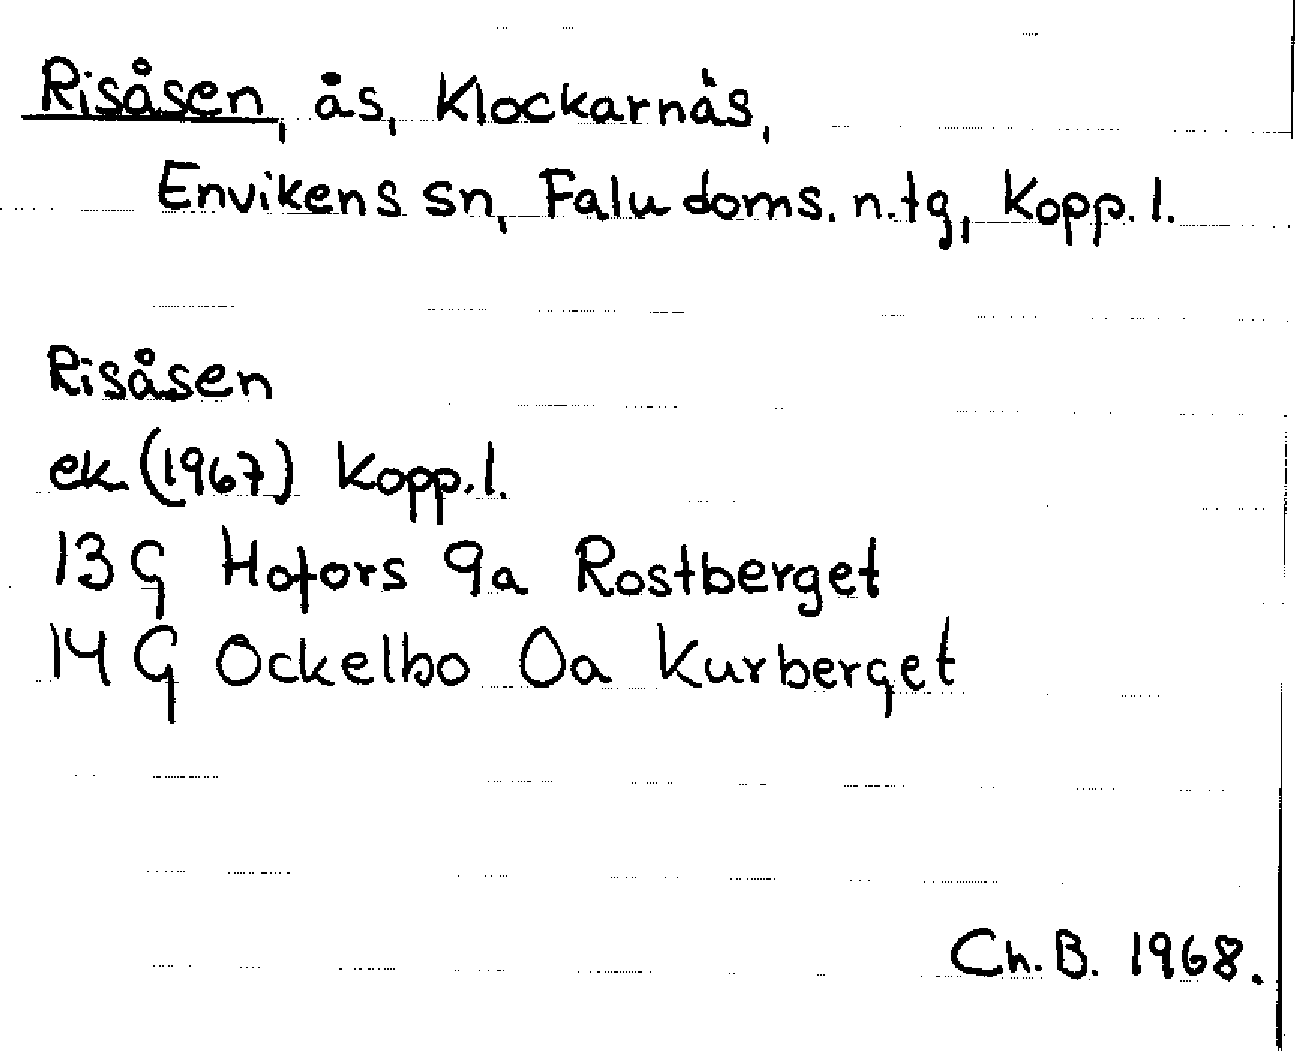 Risåsen, ås, Klockarnäs,
Envikens sn, Falu doms. n.tg, Kopp. l.
Risåsen
ek (1967) Kopp. l.
13 G Hofors 9a Rostberget
14 G Ockelbo 0a Kurberget
Ch. B. 1968.